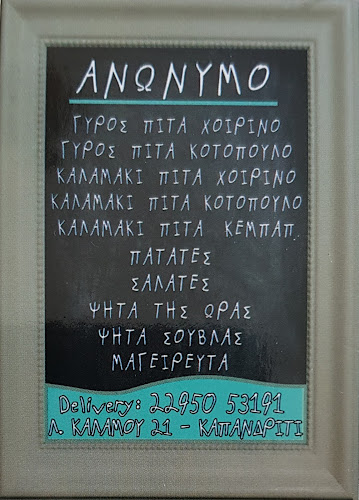 ΑΝΩΝΥΜΟ
ΓΥΡΟΣ ΠΙΤΑ ΧΟΙΡΙΝΟ
ΓΥΡΟΣ ΠΙΤΑ ΚΟΤΟΠΟΥΛΟ
ΚΑΛΑΜΑΚΙ ΠΙΤΑ ΧΟΙΡΙΝΟ
ΚΑΛΑΜΑΚΙ ΠΙΤΑ ΚΟΤΟΠΟΥΛΟ
ΚΑΛΑΜΑΚΙ ΠΙΤΑ ΚΕΜΠΑΠ.
ΠΑΤΑΤΕΣ
ΣΑΛΑΤΕΣ
ΨΗΤΑ ΤΗΣ ΩΡΑΣ
ΨΗΤΑ ΣΟΥΒΛΑΣ
ΜΑΓΕΙΡΕΥΤΑ
Delivery: 22950 53191
Λ. ΚΑΛΑΜΟΥ 21 - ΚΑΠΑΝΔΡΙΤΙ